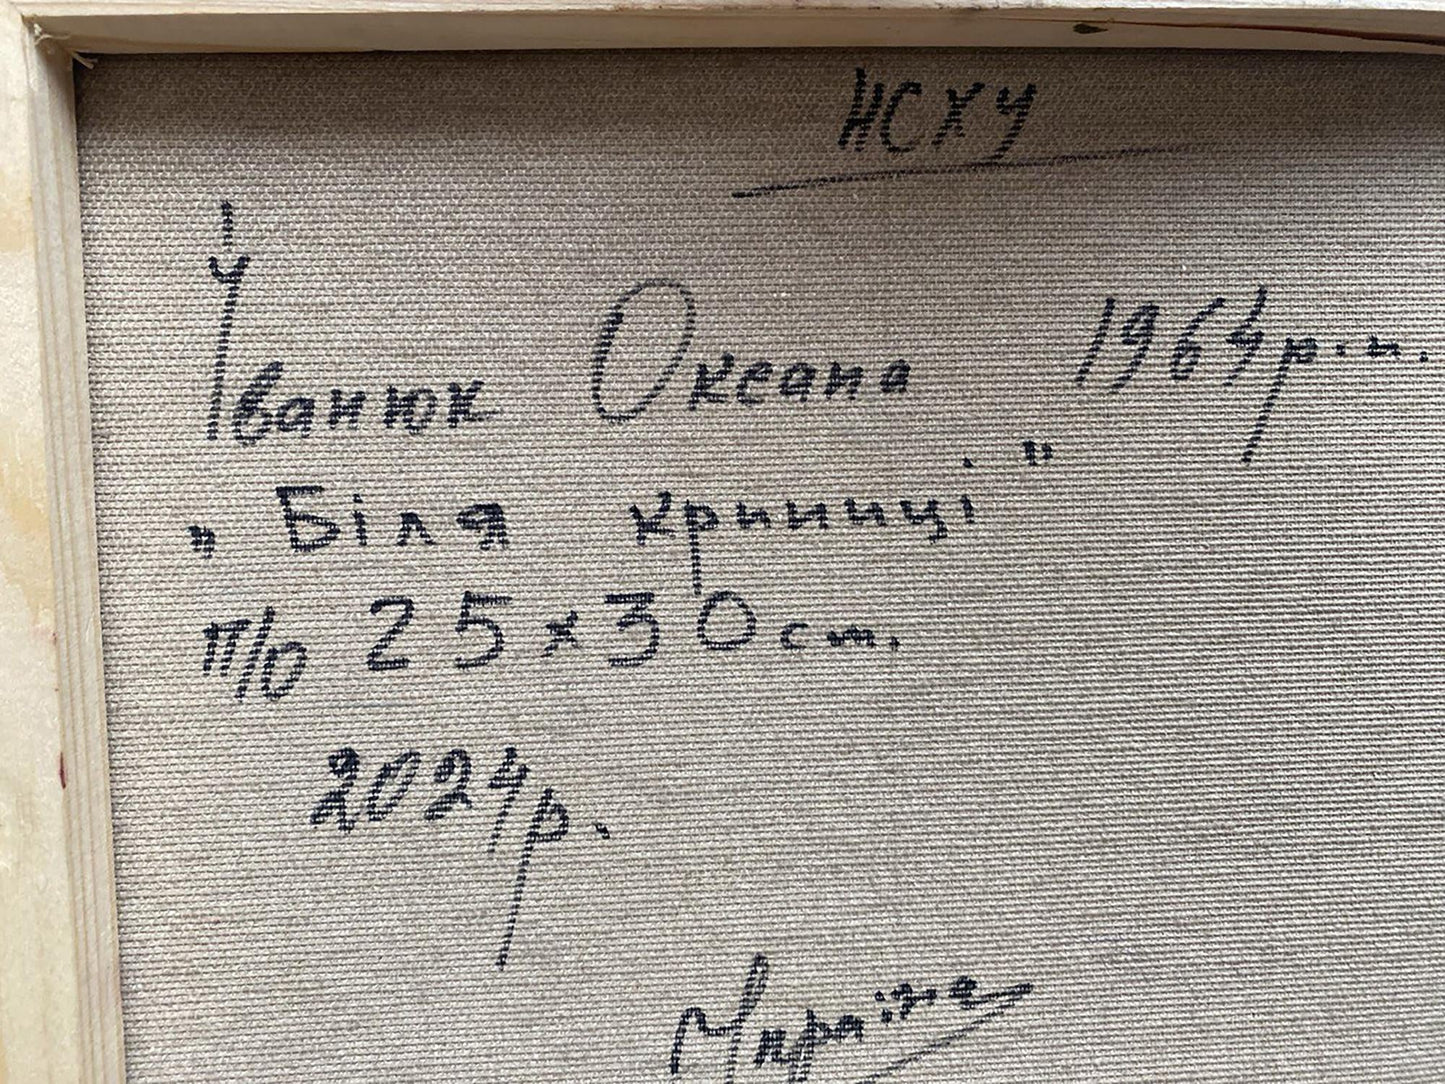 НСХУ
Іванюк Океана 1964р.н.
„Біля криниці"
п/о 25х30см.
2024р.
Україна